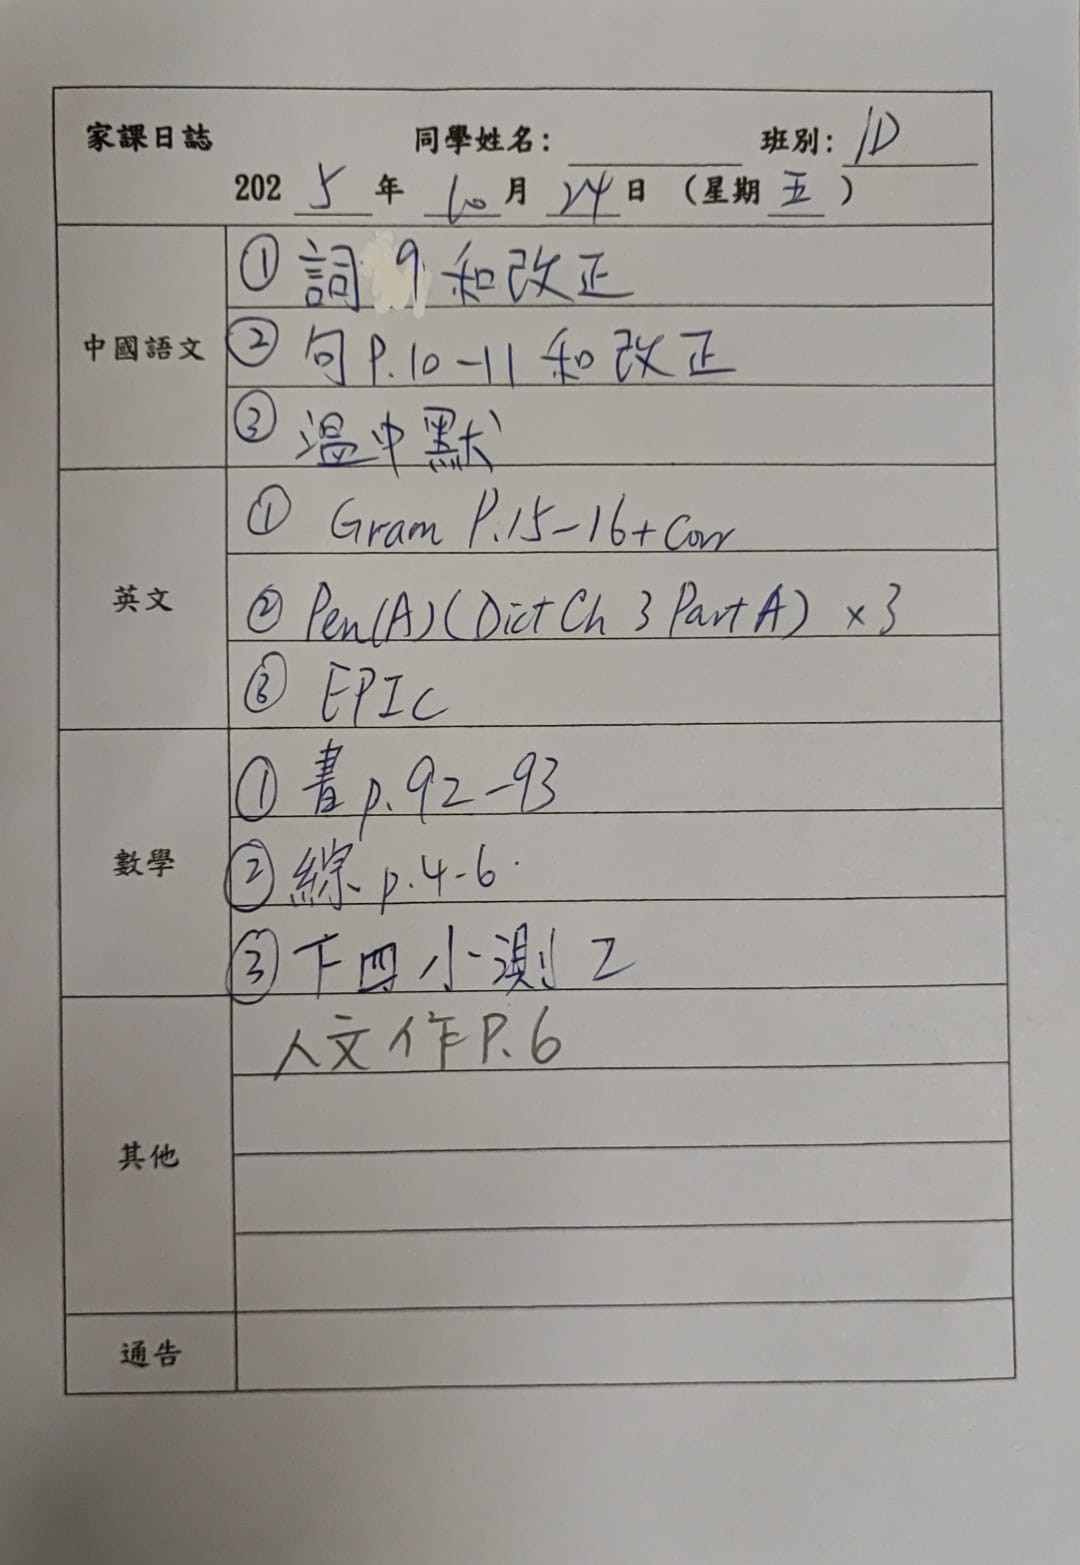 家課日誌 同學姓名: 班別: 1D
2025年10月24日 (星期五)
中國語文
① 詞 9 和改正
② 句 P.10-11 和改正
③ 溫中默
英文
① Gram P.15-16 + Corr
② Pen(A) (Dict Ch 3 Part A) × 3
③ EPIC
數學
① 書 p.92-93
② 綜 p.4-6
③ 下四小測 2
其他
人文作 P.6
通告